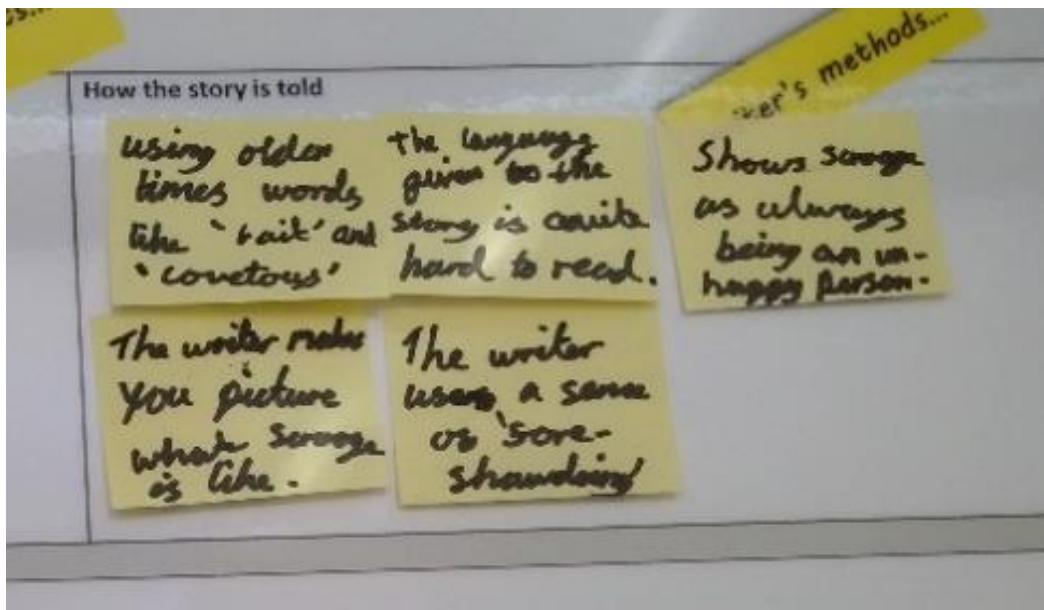 How the story is told
methods...
using older
times words
like 'gait' and
'covetous'
The language
given to the
story is quite
hard to read.
Shows scrooge
as always
being an un-
happy person.
The writer makes
you picture
what Scrooge
is like.
The writer
uses a sense
of 'fore-